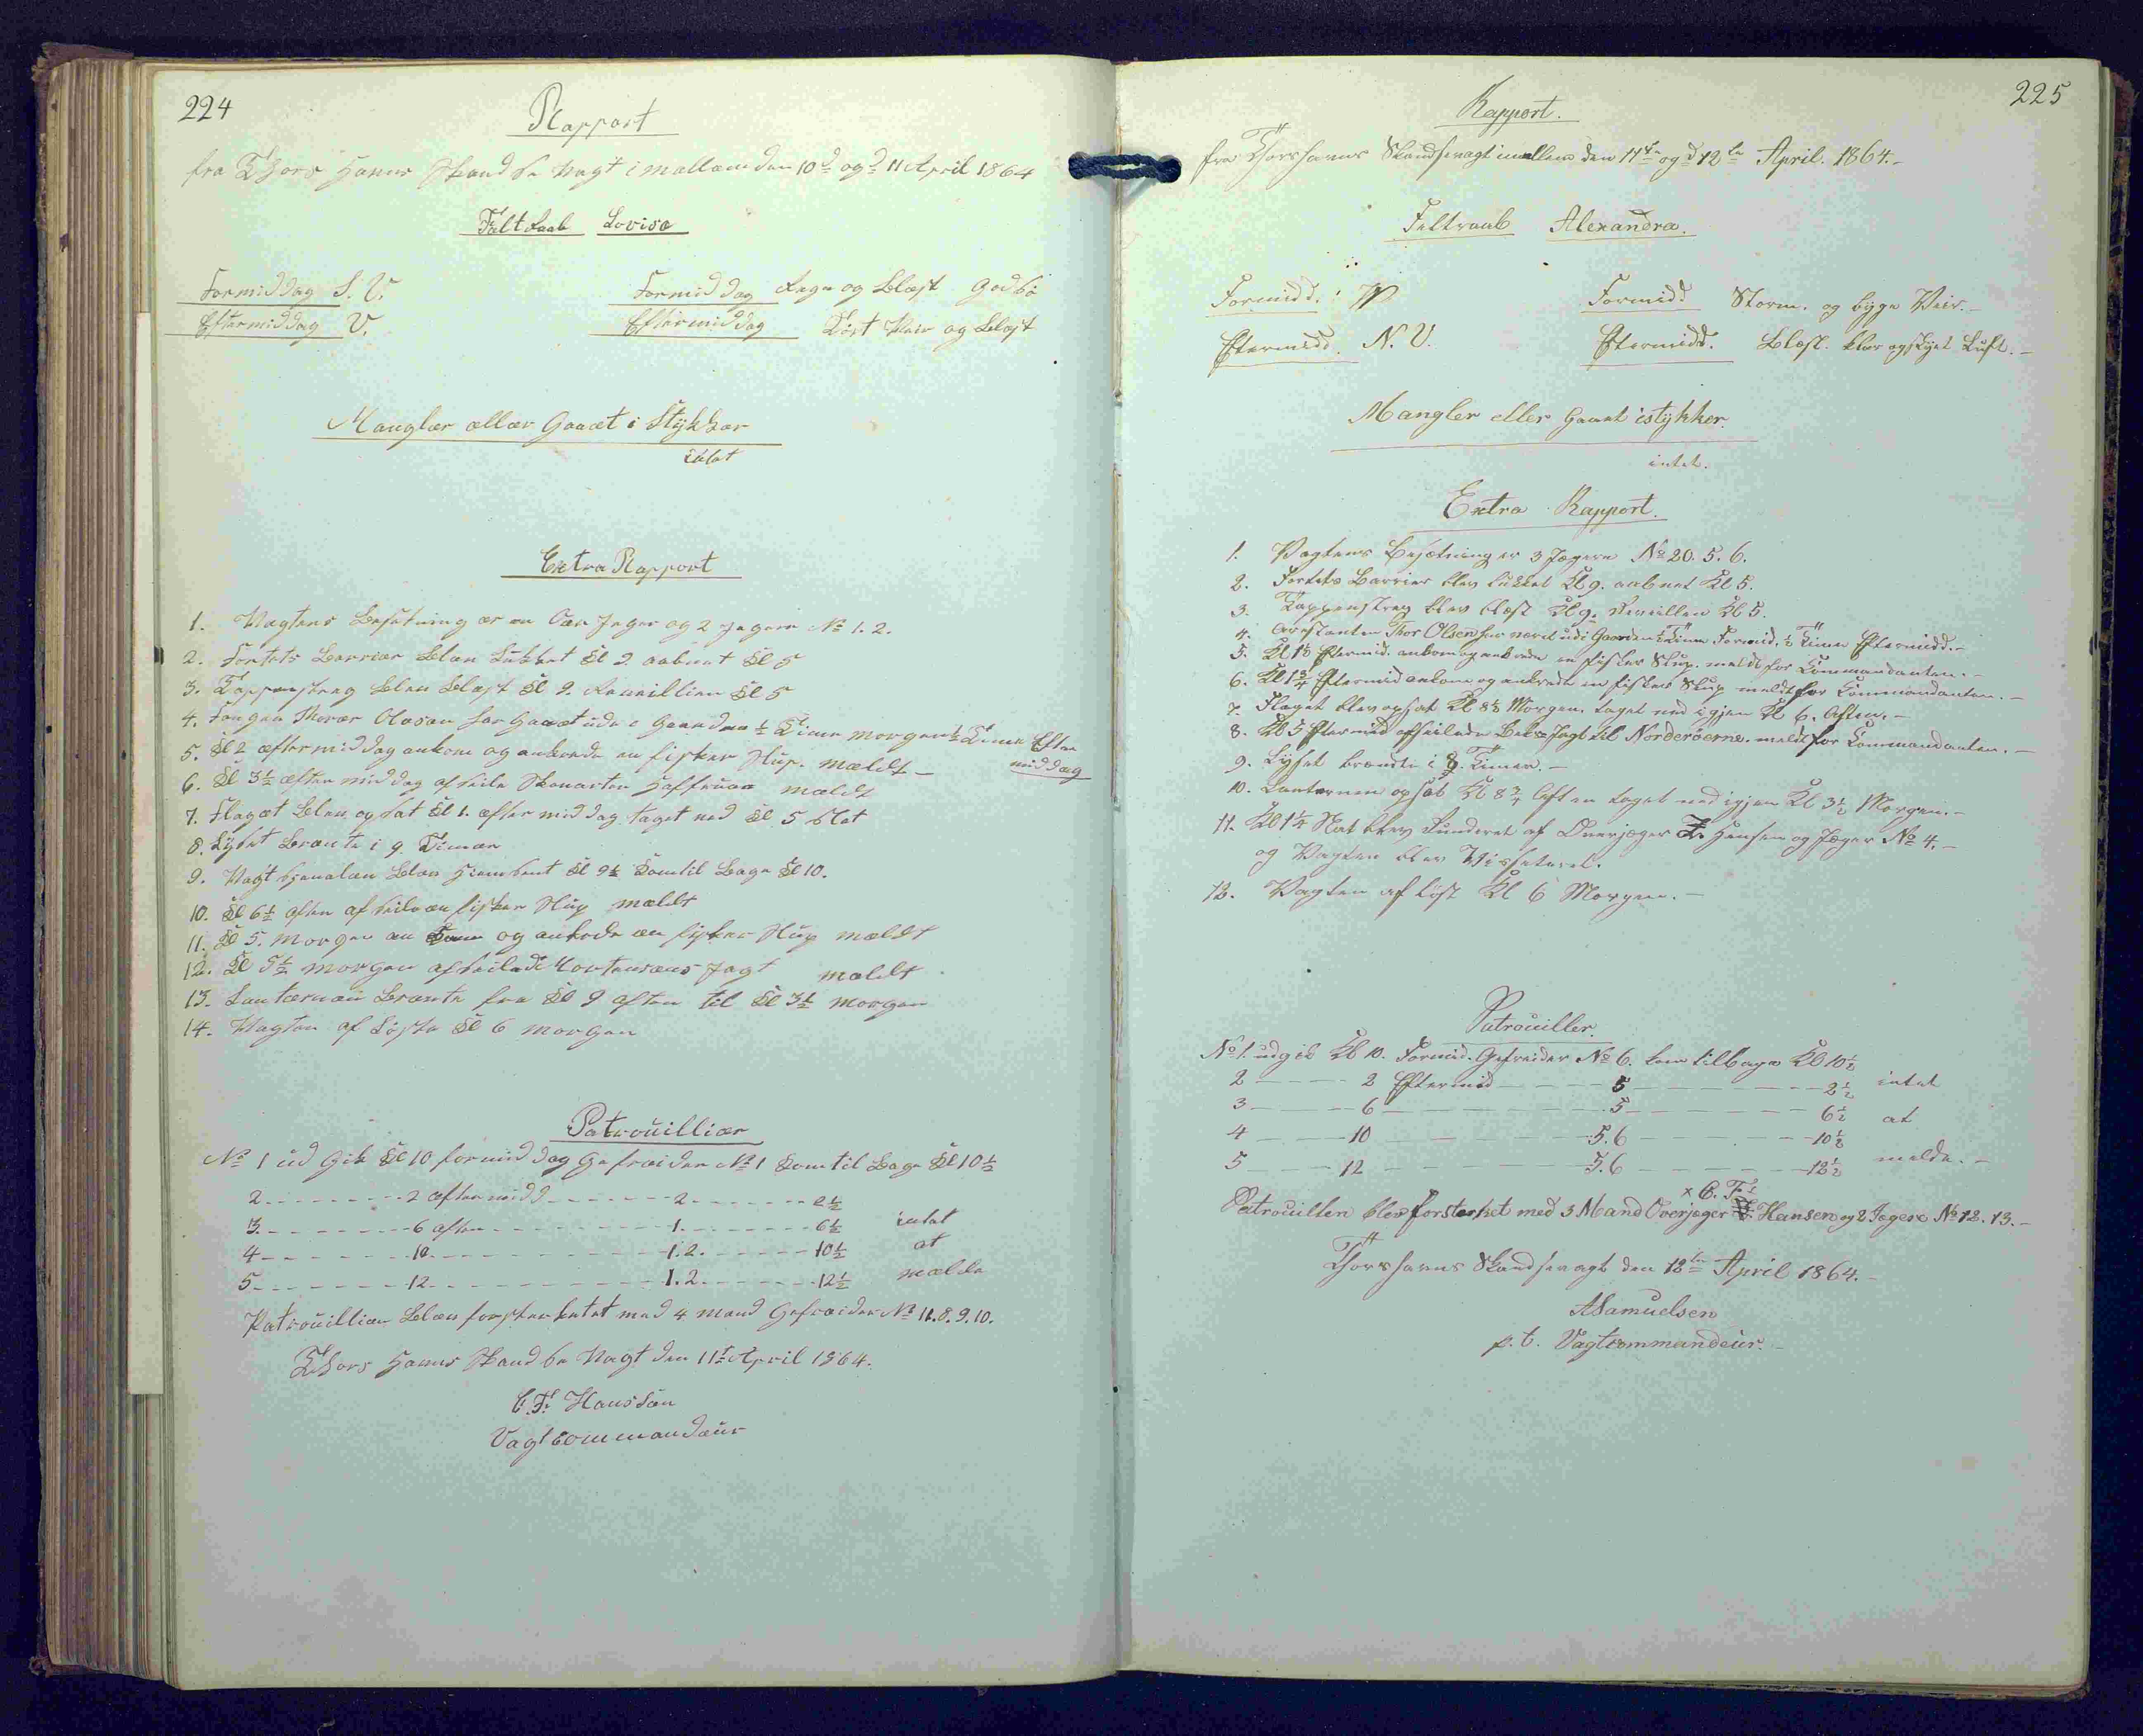 224
Rapport
fra Thors Havns Skandse Vagt i mellem den 10d og d 11 April 1864
Feltraab Lovisa
Formiddag S. V. Formiddag Regn og Blæst
Eftermiddag V. Eftermiddag Tört Veir og Blæst
Mangler eller Gaaet i Stykker
intet
Extra Rapport
1. Vagtens Besetning er en Over Jeger og 2 Jegere No 1. 2.
2. Fortets Barriær Blev Lukket Kl 9. aabnet Kl 5
3. Tappenstreg Blev Blæst Kl 9. Reveillien Kl 5
4. Fangen Thorer Olesen har Gaaet ude i Gaarden ½ Time morgen ½ Time Efter
middag
5. Kl 2 eftermiddag ankom og ankrede en fisker Slup. mældt –
6. Kl 3½ eftermiddag afseile Skonnerten Haffruen mældt
7. Flaget Blev opsat Kl 1. eftermiddag taget ned Kl 5 Slet
8. Lyset Brænte i 9. Timer
9. Vagt Kjenalen Blev Hiemsent Kl 9½ Kom til Bage Kl 10.
10. Kl 6½ aften afseile en fisker Slup mældt
11. Kl 5. Morgen an Kom og ankrede en fisker Slup mældt
12. Kl 5½ morgen afseilede Mortensens Jagt mældt
13. Lanternen Brænte fra Kl 9 aften til Kl 3½ morgen
14. Vagten af Löste Kl 6 morgen
Patrouillier
No 1 ud Gik Kl 10 formiddag Gefreider No 1 Kom til Bage Kl 10½
2 - - - 2 eftermidd - - - 2 - - - 2½
3. - - - 6 aften - - - 1. - - - 6½ intet
4 - - - 10 - - - 1. 2. - - - 10½ at
5 - - - 12 - - - 1. 2. - - - 12½ mælde
Patrouillien Blev forsterketet med 4 mand Gefreider No 11. 8. 9. 10.
Thors Havns Skandse Vagt den 11te April 1864.
C. F. Hanssen
Vagtcommandeur
225
Rapport.
fra Thorshavns Skandsevagt imellem den 11te og d 12te April. 1864.–
Feltraab Alexandra.
Formidd. W Formidd Storm. og byge Veir.–
Eftermidd. N. V. Eftermidd. Blæst. klar og skyet Luft.–
Mangler eller Gaaet istykker.
intet.
Extra Rapport.
1. Vagtens Besætning er 3 Jægere No 20. 5. 6.
2. Fortets Barrier blev lukket Kl 9. aabnet Kl 5.
3. Tappenstreg blev blæst Kl 9. Reveillen Kl 5.
4. Arrestanten Thor Olsen har været ude i Gaarden ½ Time Formid. ½ Time Eftermidd.–
5. Kl 1½ Eftermid. ankom og ankrede en fisker Slup. meldt for Commandanten.–
6. Kl 1¾ Eftermid ankom og ankrede en fisker Slup meldt for Commandanten.–
7. Flaget blev opsat Kl 8½ Morgen. taget ned igjen Kl 6. Aften.–
8. Kl 5 Eftermid afseilede Jagt til Norderöerne. meldt for Commandanten.–
9. Lyset brændte i 9. Timer.–
10. Lanternen opsat Kl 8¾ Aften taget ned igjen Kl 3½ Morgen.–
11. Kl 1¼ Nat blev Runderet af Overjæger Hansen og Jæger No 4.–
og Vagten blev Visseteret.
12. Vagten aflöst Kl 6 Morgen.–
Patrouiller.
No 1. udgik Kl 10. Formid. Gefreider No 6. kom tilbage Kl 10½
2 – – – 2 Eftermid – – – 5 – – – 2½ intet
3 – – – 6 – – – 5 – – – 6½ at
4 – – – 10 – – – 5. 6 – – – 10½
5 – – – 12 – – – 5. 6 – – – 12½ melde.–
x C. F.
Patrouillen blev forsterket med 3 Mand Overjæger Hansen og 2 Jægere No 12. 13.–
Thorshavns Skandsevagt den 12te April 1864.–
ASamuelsen
p. t. Vagtkommandeur.–